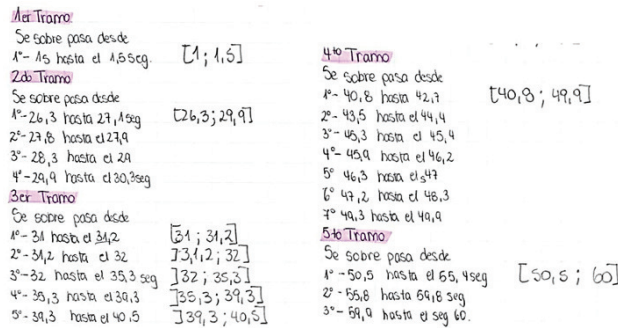 1er Tramo
Se sobre pasa desde
1°- 1s hasta el 1,5seg. [1 ; 1,5]
2do Tramo
Se sobre pasa dsde
1°- 26,3 hasta 27,1seg [26,3 ; 29,9]
2°- 27,8 hasta el 27,9
3°- 28,3 hasta el 29
4°- 29,9 hasta el 30,3seg
3er Tramo
Se sobre pasa dsde
1°- 31 hasta el 31,2 [31 ; 31,2]
2°- 31,2 hasta el 32 ]3,1,2 ; 32]
3°- 32 hasta el 35,3 seg ]32 ; 35,3]
4°- 35,3 hasta el 39,3 ]35,3 ; 39,3]
5°- 39,3 hasta el 40,5 ]39,3 ; 40,5]
4to Tramo
Se sobre pasa desde
1°- 40,8 hasta 42,7 [40,8 ; 49,9]
2°- 43,5 hasta el 44,4
3°- 45,3 hasta el 45,4
4°- 45,9 hasta el 46,2
5° 46,3 hasta el 47
6° 47,2 hasta el 48,3
7° 49,3 hasta el 49,9
5to Tramo
Se sobre pasa desde
1° - 50,5 hasta el 55,4seg [50,5 ; 60]
2° - 55,8 hasta 59,8 seg
3°- 59,9 hasta el seg 60.